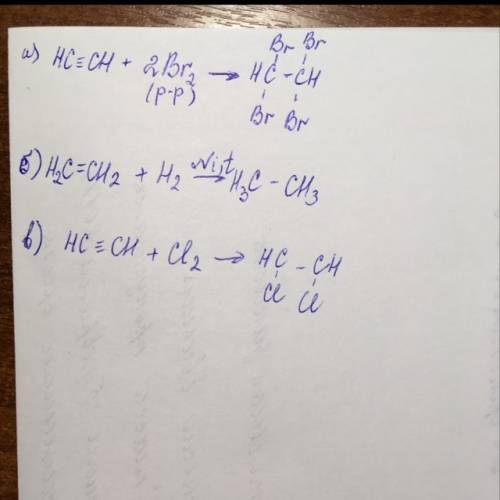 Br Br
а) HC≡CH + 2Br₂ → HC - CH
(р-р)
Br Br
б) H₂C=CH₂ + H₂ Ni,t → H₃C - CH₃
в) HC≡CH + Cl₂ → HC - CH
Cl Cl